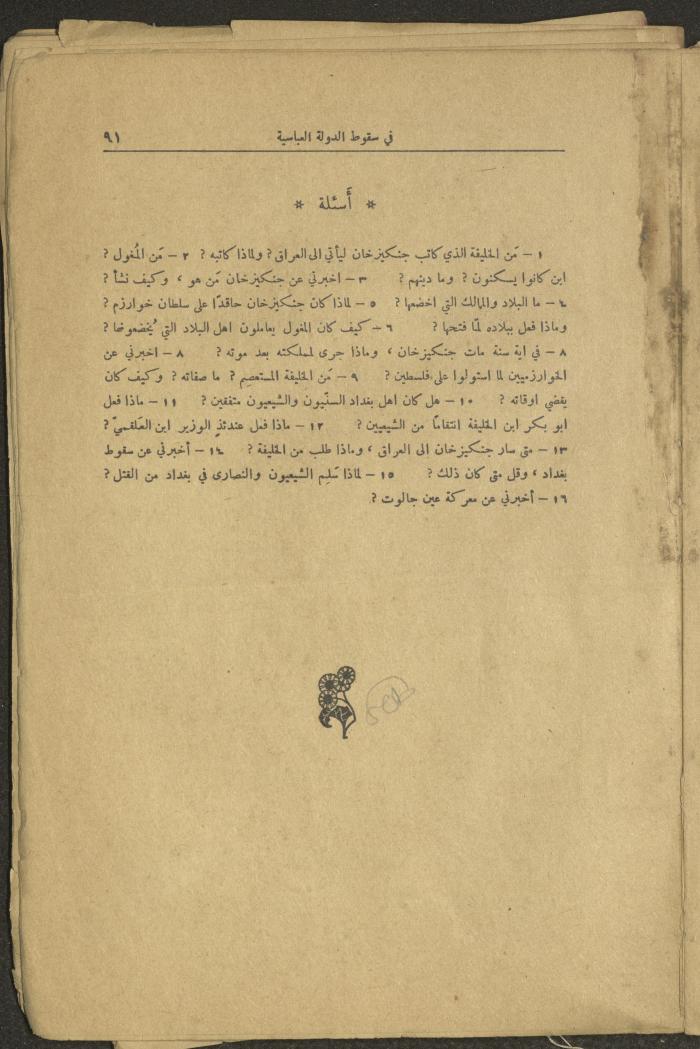 في سقوط الدولة العباسية ٩١
* أَسئلة *
١ – مَن الخليفة الذي كاتب جنكيزخان ليأتي الى العراق؟ ولماذا كاتبه؟ ٢ – مَن المُغول؟
اين كانوا يسكنون؟ وما دينهم؟ ٣ – اخبرني عن جنكيزخان مَن هو، وكيف نشأ؟
٤ – ما البلاد والمالك التي اخضعها؟ ٥ – لماذا كان جنكيزخان حاقدًا على سلطان خوارزم؟
وماذا فعل ببلاده لمّا فتحها؟ ٦ – كيف كان المغول يعاملون اهل البلاد التي يُخضعوضا؟
٨ – في اية سنة مات جنكيزخان، وماذا جرى لمملكته بعد موته؟ ٨ – اخبرني عن
الخوارزميين لما استولوا على فلسطين؟ ٩ – مَن الخليفة المستعصِم؟ ما صفاته؟ وكيف كان
يقضي اوقاته؟ ١٠ – هل كان اهل بغداد السنّيون والشيعيون متفقين؟ ١١ – ماذا فعل
ابو بكر ابن الخليفة انتقامًا من الشيعيين؟ ١٢ – ماذا فعل عندئذٍ الوزير ابن العَلقميّ؟
١٣ – متى سار جنكيزخان الى العراق، وماذا طلب من الخليفة؟ ١٤ – أخبرني عن سقوط
بغداد، وقل متى كان ذلك؟ ١٥ – لماذا سَلِم الشيعيون والنصارى في بغداد من القتل؟
١٦ – أخبرني عن معركة عين جالوت؟